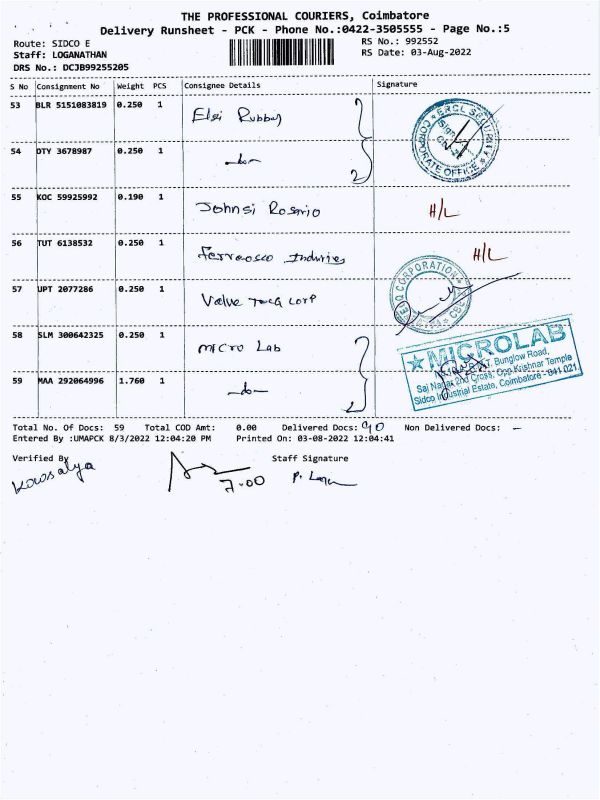 THE PROFESSIONAL COURIERS, Coimbatore
Delivery Runsheet - PCK - Phone No.:0422-3505555 - Page No.:5
Route: SIDCO E
RS No.: 992552
Staff: LOGANATHAN
RS Date: 03-Aug-2022
DRS No.: DCJB99255205
S No Consignment No Weight PCS Consignee Details Signature
53 BLR 5151083819 0.250 1 Elsi Rubby 2
54 OTY 3678987 0.250 1 -do-
CORPORATE OFFICE
55 KOC 59925992 0.190 1 Johnsi Rosario H/L
56 TUT 6138532 0.250 1 H/L
57 UPT 2077286 0.250 1 Valve Tech Corp
CORPORATION
58 SLM 300642325 0.250 1 Micro Lab 2
59 MAA 292064996 1.760 1 -do-
MICROLAB
Bunglow Road,
2nd Cross, Opp.Krishnar Temple
Sidco Industrial Estate, Coimbatore - 641 021
Total No. Of Docs: 59 Total COD Amt: 0.00 Delivered Docs: 90 Non Delivered Docs: -
Entered By :UMAPCK 8/3/2022 12:04:20 PM Printed On: 03-08-2022 12:04:41
Verified By Staff Signature
Kowsalya 7.00